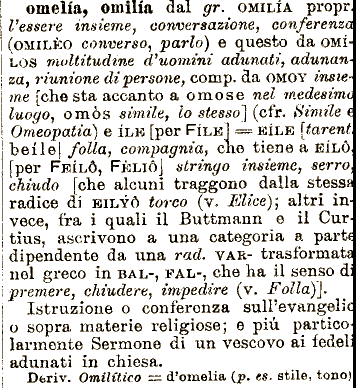 omelía, omilía dal gr. OMILÍA propr.
l'essere insieme, conversazione, conferenza
(OMILÈO converso, parlo) e questo da OMÍ-
LOS moltitudine d'uomini adunati, adunan-
za, riunione di persone, comp. da OMOY insie-
me [che sta accanto a OMOSE nel medesimo
luogo, OMÒS simile, lo stesso] (cfr. Simile e
Omeopatia) e ÍLE [per FÍLE] = EÍLE [tarent.
beíle] folla, compagnia, che tiene a EILÔ,
[per FEÍLÔ, FÈLIÔ] stringo insieme, serro,
chiudo [che alcuni traggono dalla stessa
radice di EILYÔ torco (v. Elice); altri in-
vece, fra i quali il Buttmann e il Cur-
tius, ascrivono a una categoria a parte
dipendente da una rad. VAR- trasformata
nel greco in BAL-, FAL-, che ha il senso di
premere, chiudere, impedire (v. Folla)].
Istruzione o conferenza sull'evangelio
o sopra materie religiose; e più partico-
larmente Sermone di un vescovo ai fedeli
adunati in chiesa.
Deriv. Omilítico = d'omelia (p. es. stile, tono)